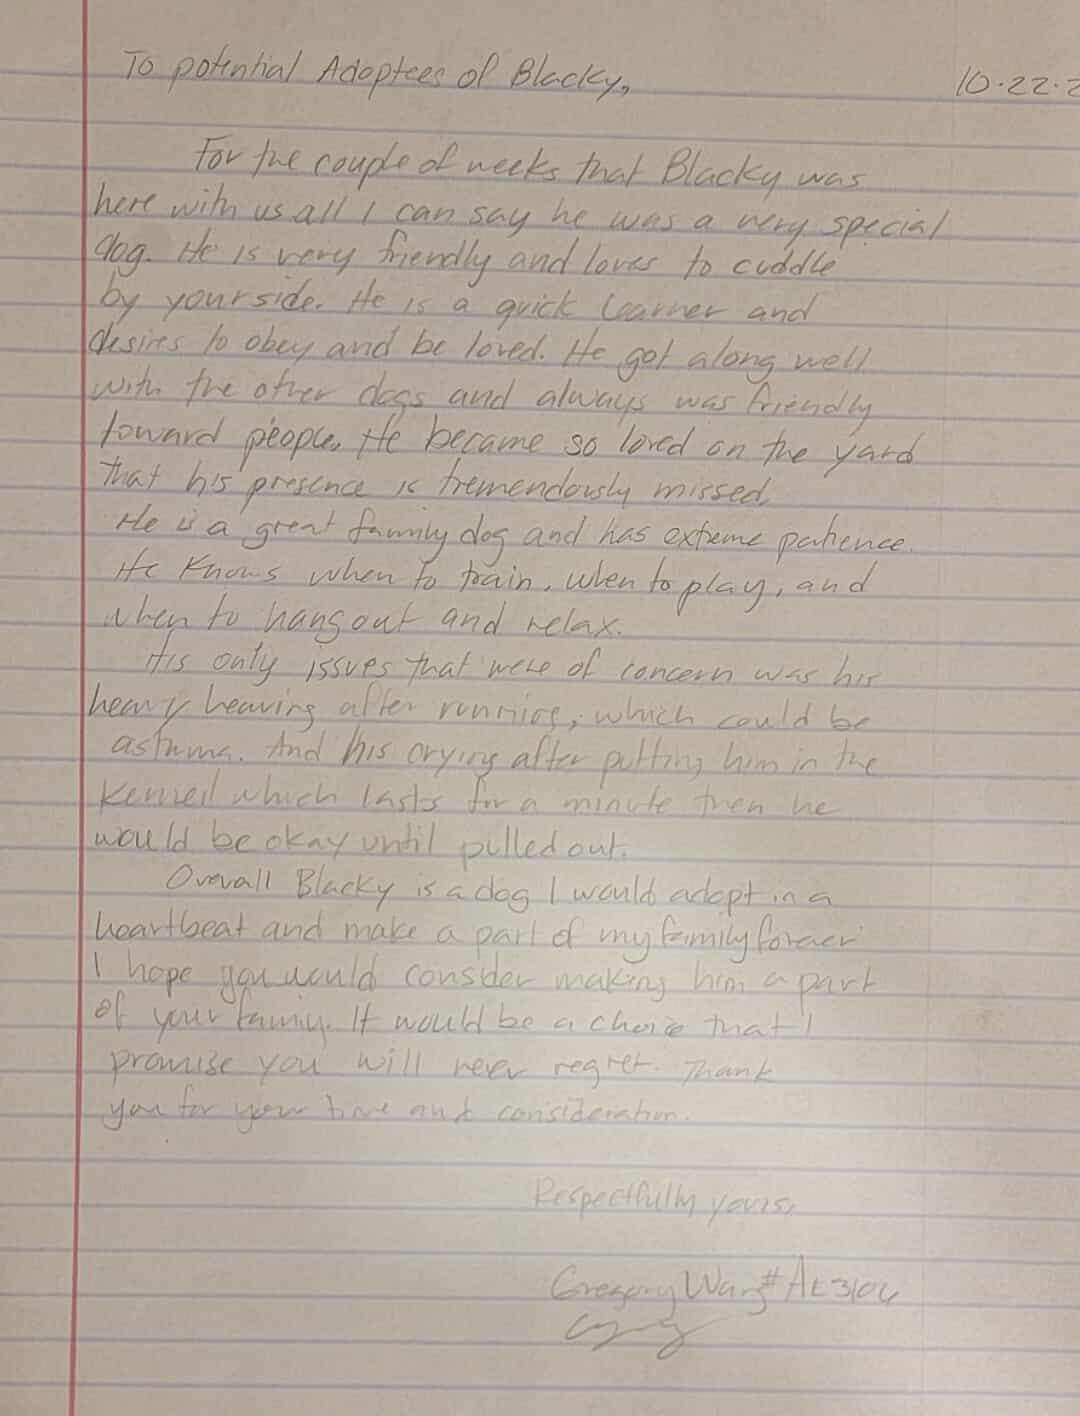 To potential Adoptees of Blacky,
10.22.2
For the couple of weeks that Blacky was
here with us all I can say he was a very special
dog. He is very friendly and loves to cuddle
by your side. He is a quick learner and
desires to obey and be loved. He got along well
with the other dogs and always was friendly
toward people. He became so loved on the yard
that his presence is tremendously missed.
He is a great family dog and has extreme patience.
He knows when to train, when to play, and
when to hang out and relax.
His only issues that were of concern was his
heavy heaving after running, which could be
asthma. And his crying after putting him in the
Kennel which lasts for a minute then he
would be okay until pulled out.
Overall Blacky is a dog I would adopt in a
heartbeat and make a part of my family forever
I hope you would consider making him a part
of your family. It would be a choice that I
promise you will never regret. Thank
you for your time and consideration.
Respectfully yours,
Gregory #